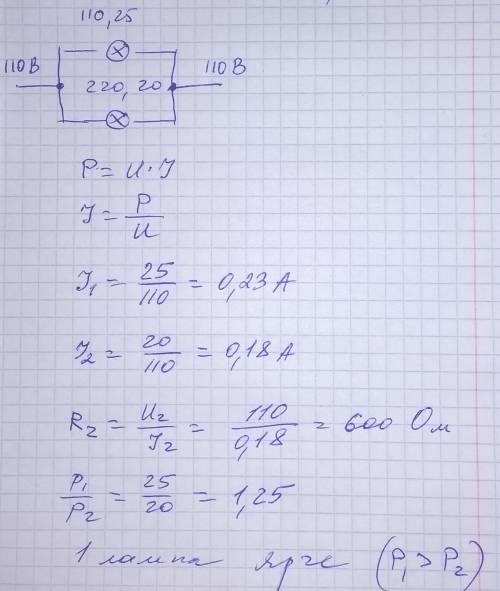 110,25
110В 110В
220, 20
P = U·J
J = P/U
J₁ = 25/110 = 0,23 А
J₂ = 20/110 = 0,18 А
R₂ = U₂/J₂ = 110/0,18 = 600 Ом
P₁/P₂ = 25/20 = 1,25
1 лампа ярче (P₁ > P₂)